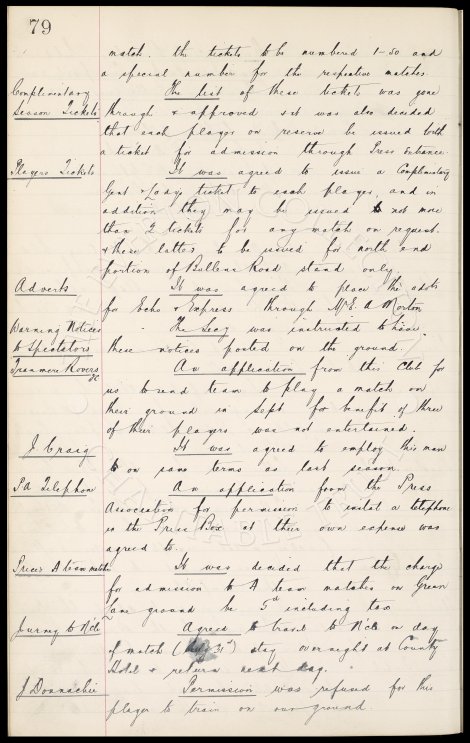 79
match. the tickets to be numbered 1-50 and
a special number for the respective matches.
Complimentary
Season Tickets
The list of these tickets was gone
through & approved & it was also decided
that each player on reserve be issued with
a ticket for admission through Press Entrance.
Players Tickets
It was agreed to issue a Complimentary
Gent & Lady ticket to each player, and in
addition they may be issued to not more
than 2 tickets for any match on request.
& these latter to be issued for north end
portion of Bullens Road stand only.
Adverts
It was agreed to place the adots
for Echo & Express through Mr E. A Morton
Warning Notices
to Spectators
The Secy was instructed to have
these notices posted on the ground.
Tranmere Rovers
FC
An application from this Club for
us to send team to play a match on
their ground in Sept for benefit of three
of their players was not entertained.
J Craig
It was agreed to employ this man
on same terms as last season.
PA Telephon
An application from the Press
Association for permission to instal a telephone
in the Press Box at their own expense was
agreed to.
Prices A team matches
It was decided that the charge
for admission to A team matches on Green
Lane ground be 5d including tax
Journey to N'cle
Agreed to travel to N'cle on day
of match (31st) stay overnight at County
Hotel & return next day.
J Donnachie
Permission was refused for this
player to train on our ground.